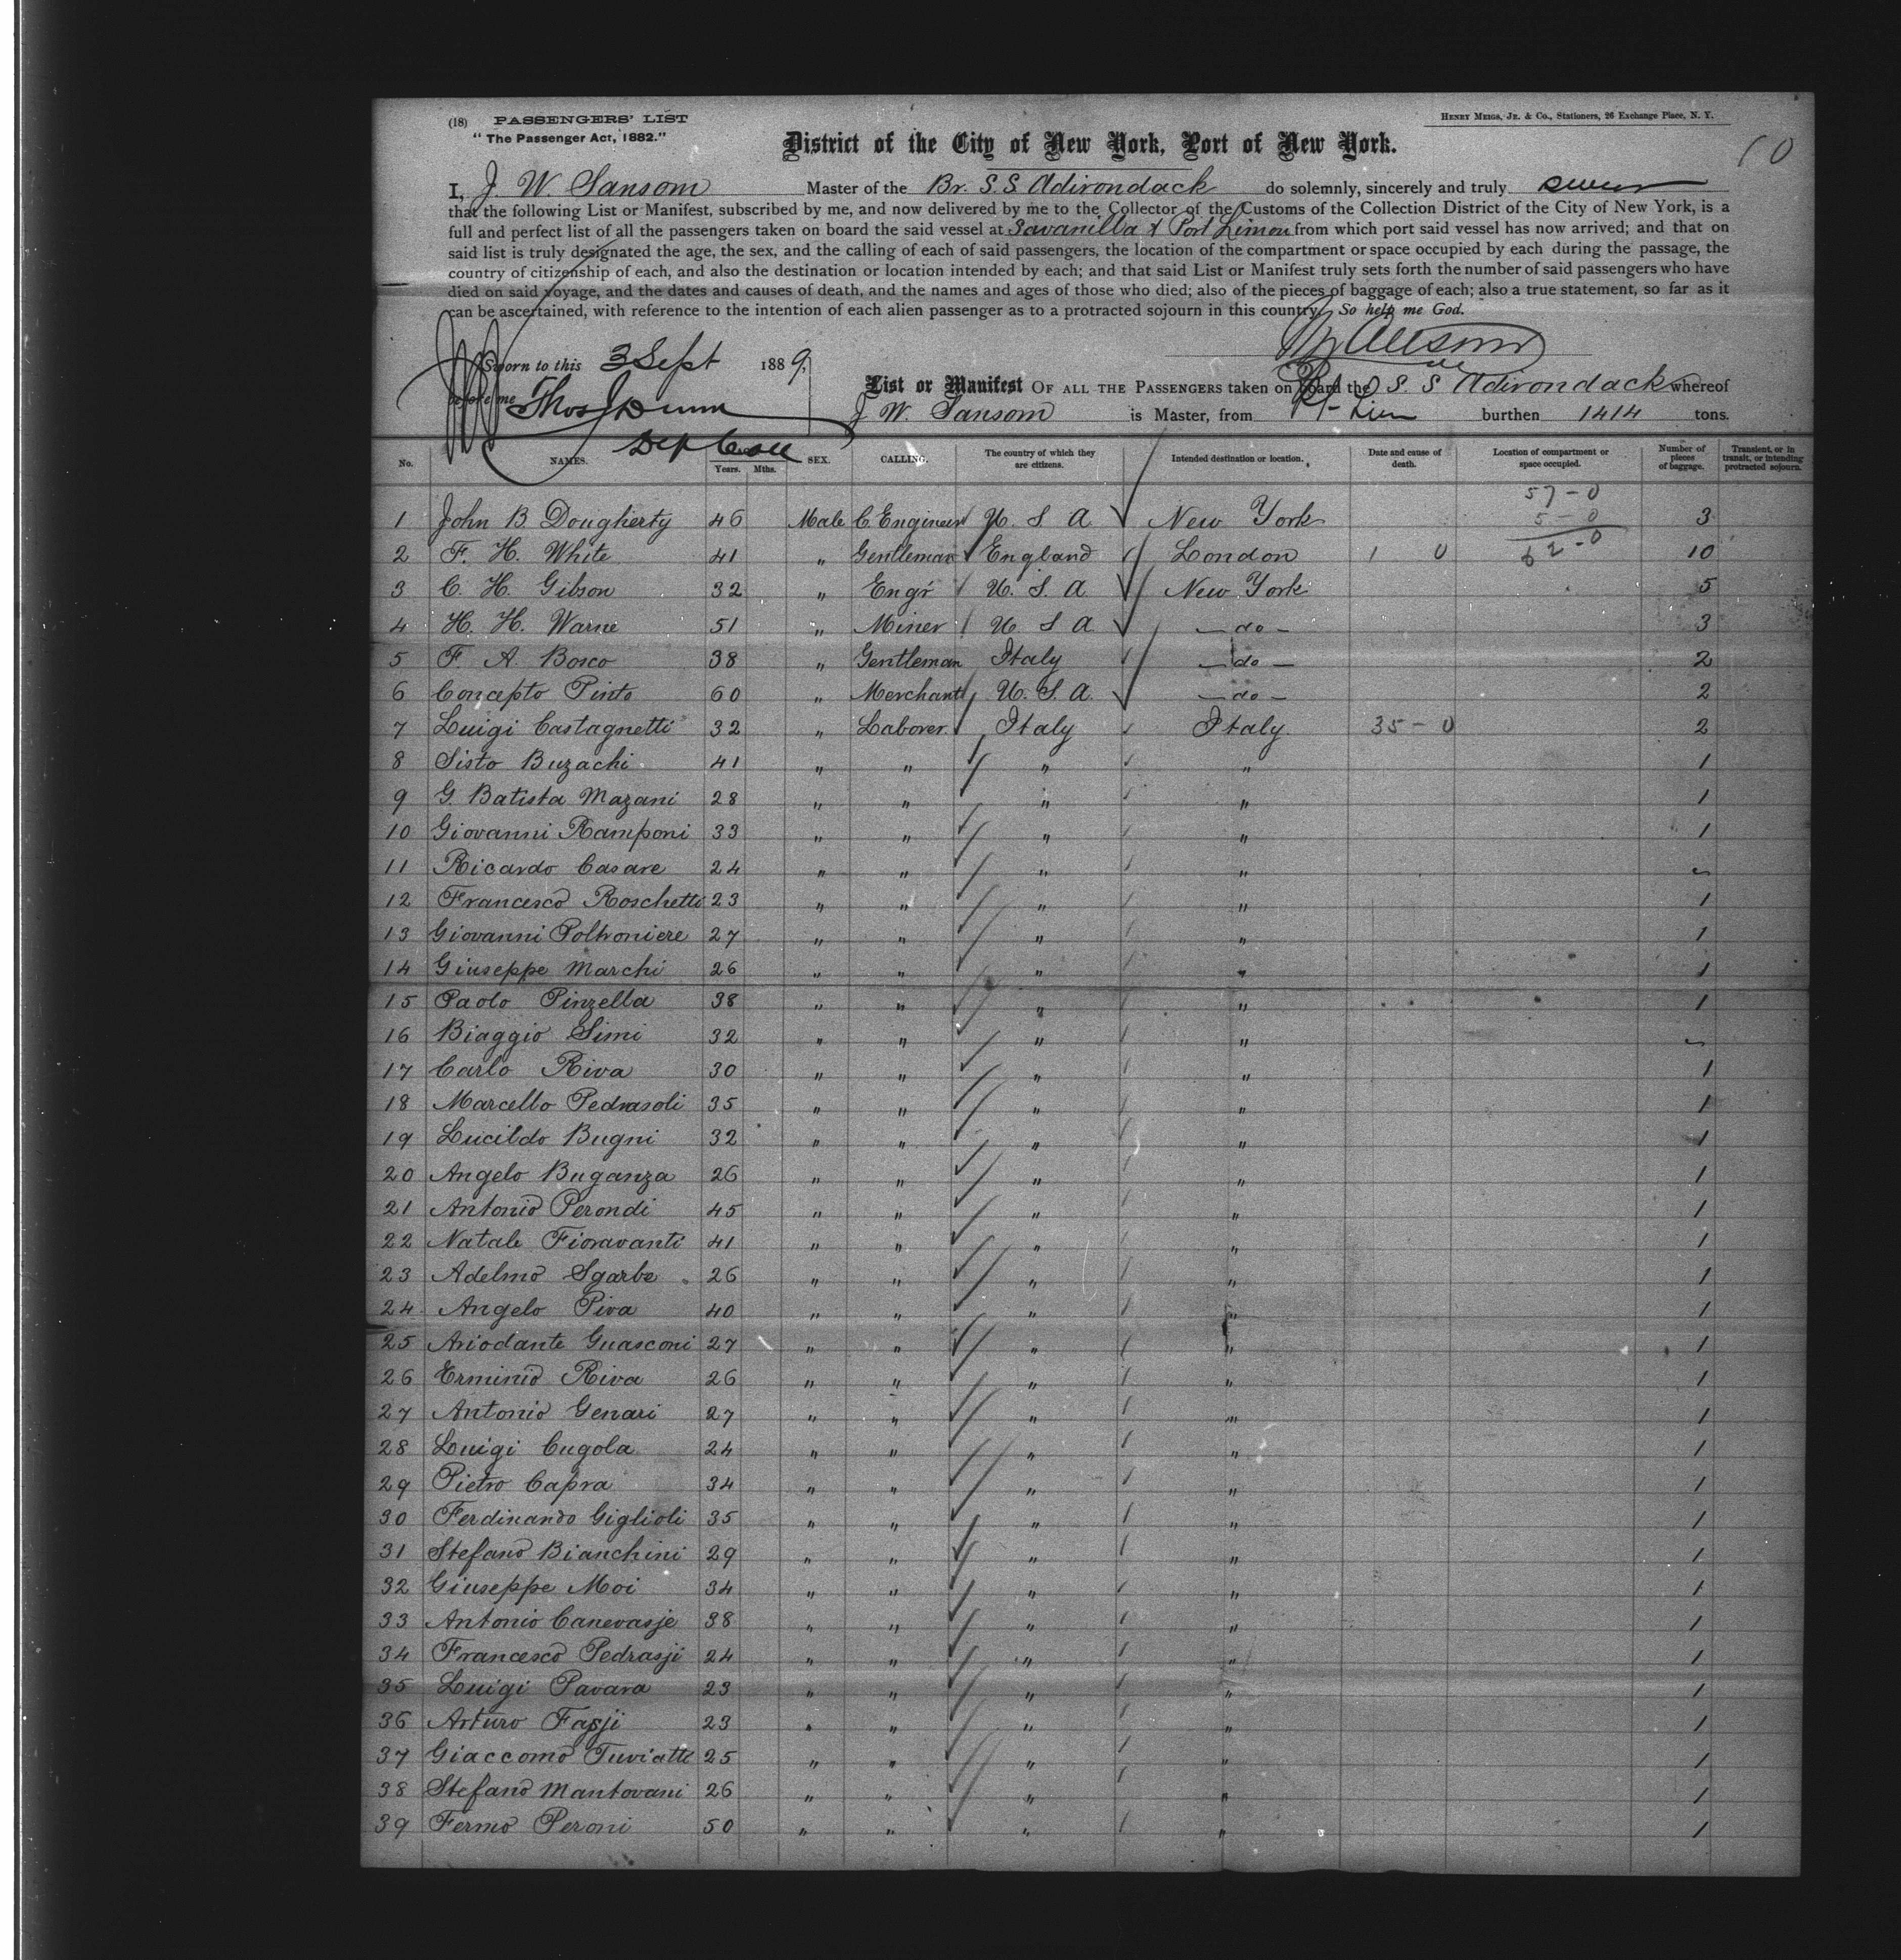 (18) PASSENGERS' LIST
"The Passenger Act, 1882."
HENRY MEIGS, JR. & CO., Stationers, 26 Exchange Place, N. Y.
10
District of the City of New York, Port of New York.
I, J. W. Sansom Master of the Br. S. S. Adirondack do solemnly, sincerely and truly swear
that the following List or Manifest, subscribed by me, and now delivered by me to the Collector of the Customs of the Collection District of the City of New York, is a
full and perfect list of all the passengers taken on board the said vessel at Savanilla & Port Limon from which port said vessel has now arrived; and that on
said list is truly designated the age, the sex, and the calling of each of said passengers, the location of the compartment or space occupied by each during the passage, the
country of citizenship of each, and also the destination or location intended by each; and that said List or Manifest truly sets forth the number of said passengers who have
died on said voyage, and the dates and causes of death, and the names and ages of those who died; also of the pieces of baggage of each; also a true statement, so far as it
can be ascertained, with reference to the intention of each alien passenger as to a protracted sojourn in this country. So help me God.
Sworn to this 3 Sept 1889,
before me Thos J Dunn
Dep Coll
List or Manifest OF ALL THE PASSENGERS taken on board the S. S Adirondack whereof
J W. Sansom is Master, from Pt Lim burthen 1414 tons.
No. NAMES. Years. Mths. SEX. CALLING. The country of which they are citizens. Intended destination or location. Date and cause of death. Location of compartment or space occupied. Number of pieces of baggage. Transient, or in transit, or intending protracted sojourn.
57-0
5-0
62-0
1 John B. Dougherty 46 Male C. Engineer U. S. A. New York 3
2 F. H. White 41 " Gentleman England London 1 0 10
3 C. H. Gibson 32 " Engr U. S. A New York 5
4 H. H. Warne 51 " Miner U S A - do - 3
5 F. A. Bosco 38 " Gentleman Italy - do - 2
6 Concepto Pinto 60 " Merchant U. S. A. - do - 2
7 Luigi Castagnetti 32 " Laborer Italy Italy 35-0 2
8 Sisto Buzachi 41 " " " " 1
9 G. Batista Mazani 28 " " " " 1
10 Giovanni Ramponi 33 " " " " 1
11 Ricardo Casare 24 " " " " ~
12 Francesco Roschetti 23 " " " " 1
13 Giovanni Poltroniere 27 " " " " 1
14 Giuseppe Marchi 26 " " " " 1
15 Paolo Pinzella 38 " " " " 1
16 Biaggio Simi 32 " " " " ~
17 Carlo Riva 30 " " " " 1
18 Marcello Pedrasoli 35 " " " " 1
19 Lucildo Bugni 32 " " " " 1
20 Angelo Buganza 26 " " " " 1
21 Antonio Perondi 45 " " " " 1
22 Natale Fioravanti 41 " " " " 1
23 Adelmo Sgarbe 26 " " " " 1
24 Angelo Piva 40 " " " " 1
25 Ariodante Guasconi 27 " " " " 1
26 Erminio Riva 26 " " " " 1
27 Antonio Genari 27 " " " " 1
28 Luigi Cugola 24 " " " " 1
29 Pietro Capra 34 " " " " 1
30 Ferdinando Giglioli 35 " " " " 1
31 Stefano Bianchini 29 " " " " 1
32 Giuseppe Moi 34 " " " " 1
33 Antonio Canevasje 38 " " " " 1
34 Francesco Pedrasji 24 " " " " 1
35 Luigi Pavara 23 " " " " 1
36 Arturo Fasji 23 " " " " 1
37 Giaccomo Tuviatte 25 " " " " 1
38 Stefano Mantovani 26 " " " " 1
39 Fermo Peroni 50 " " " " 1